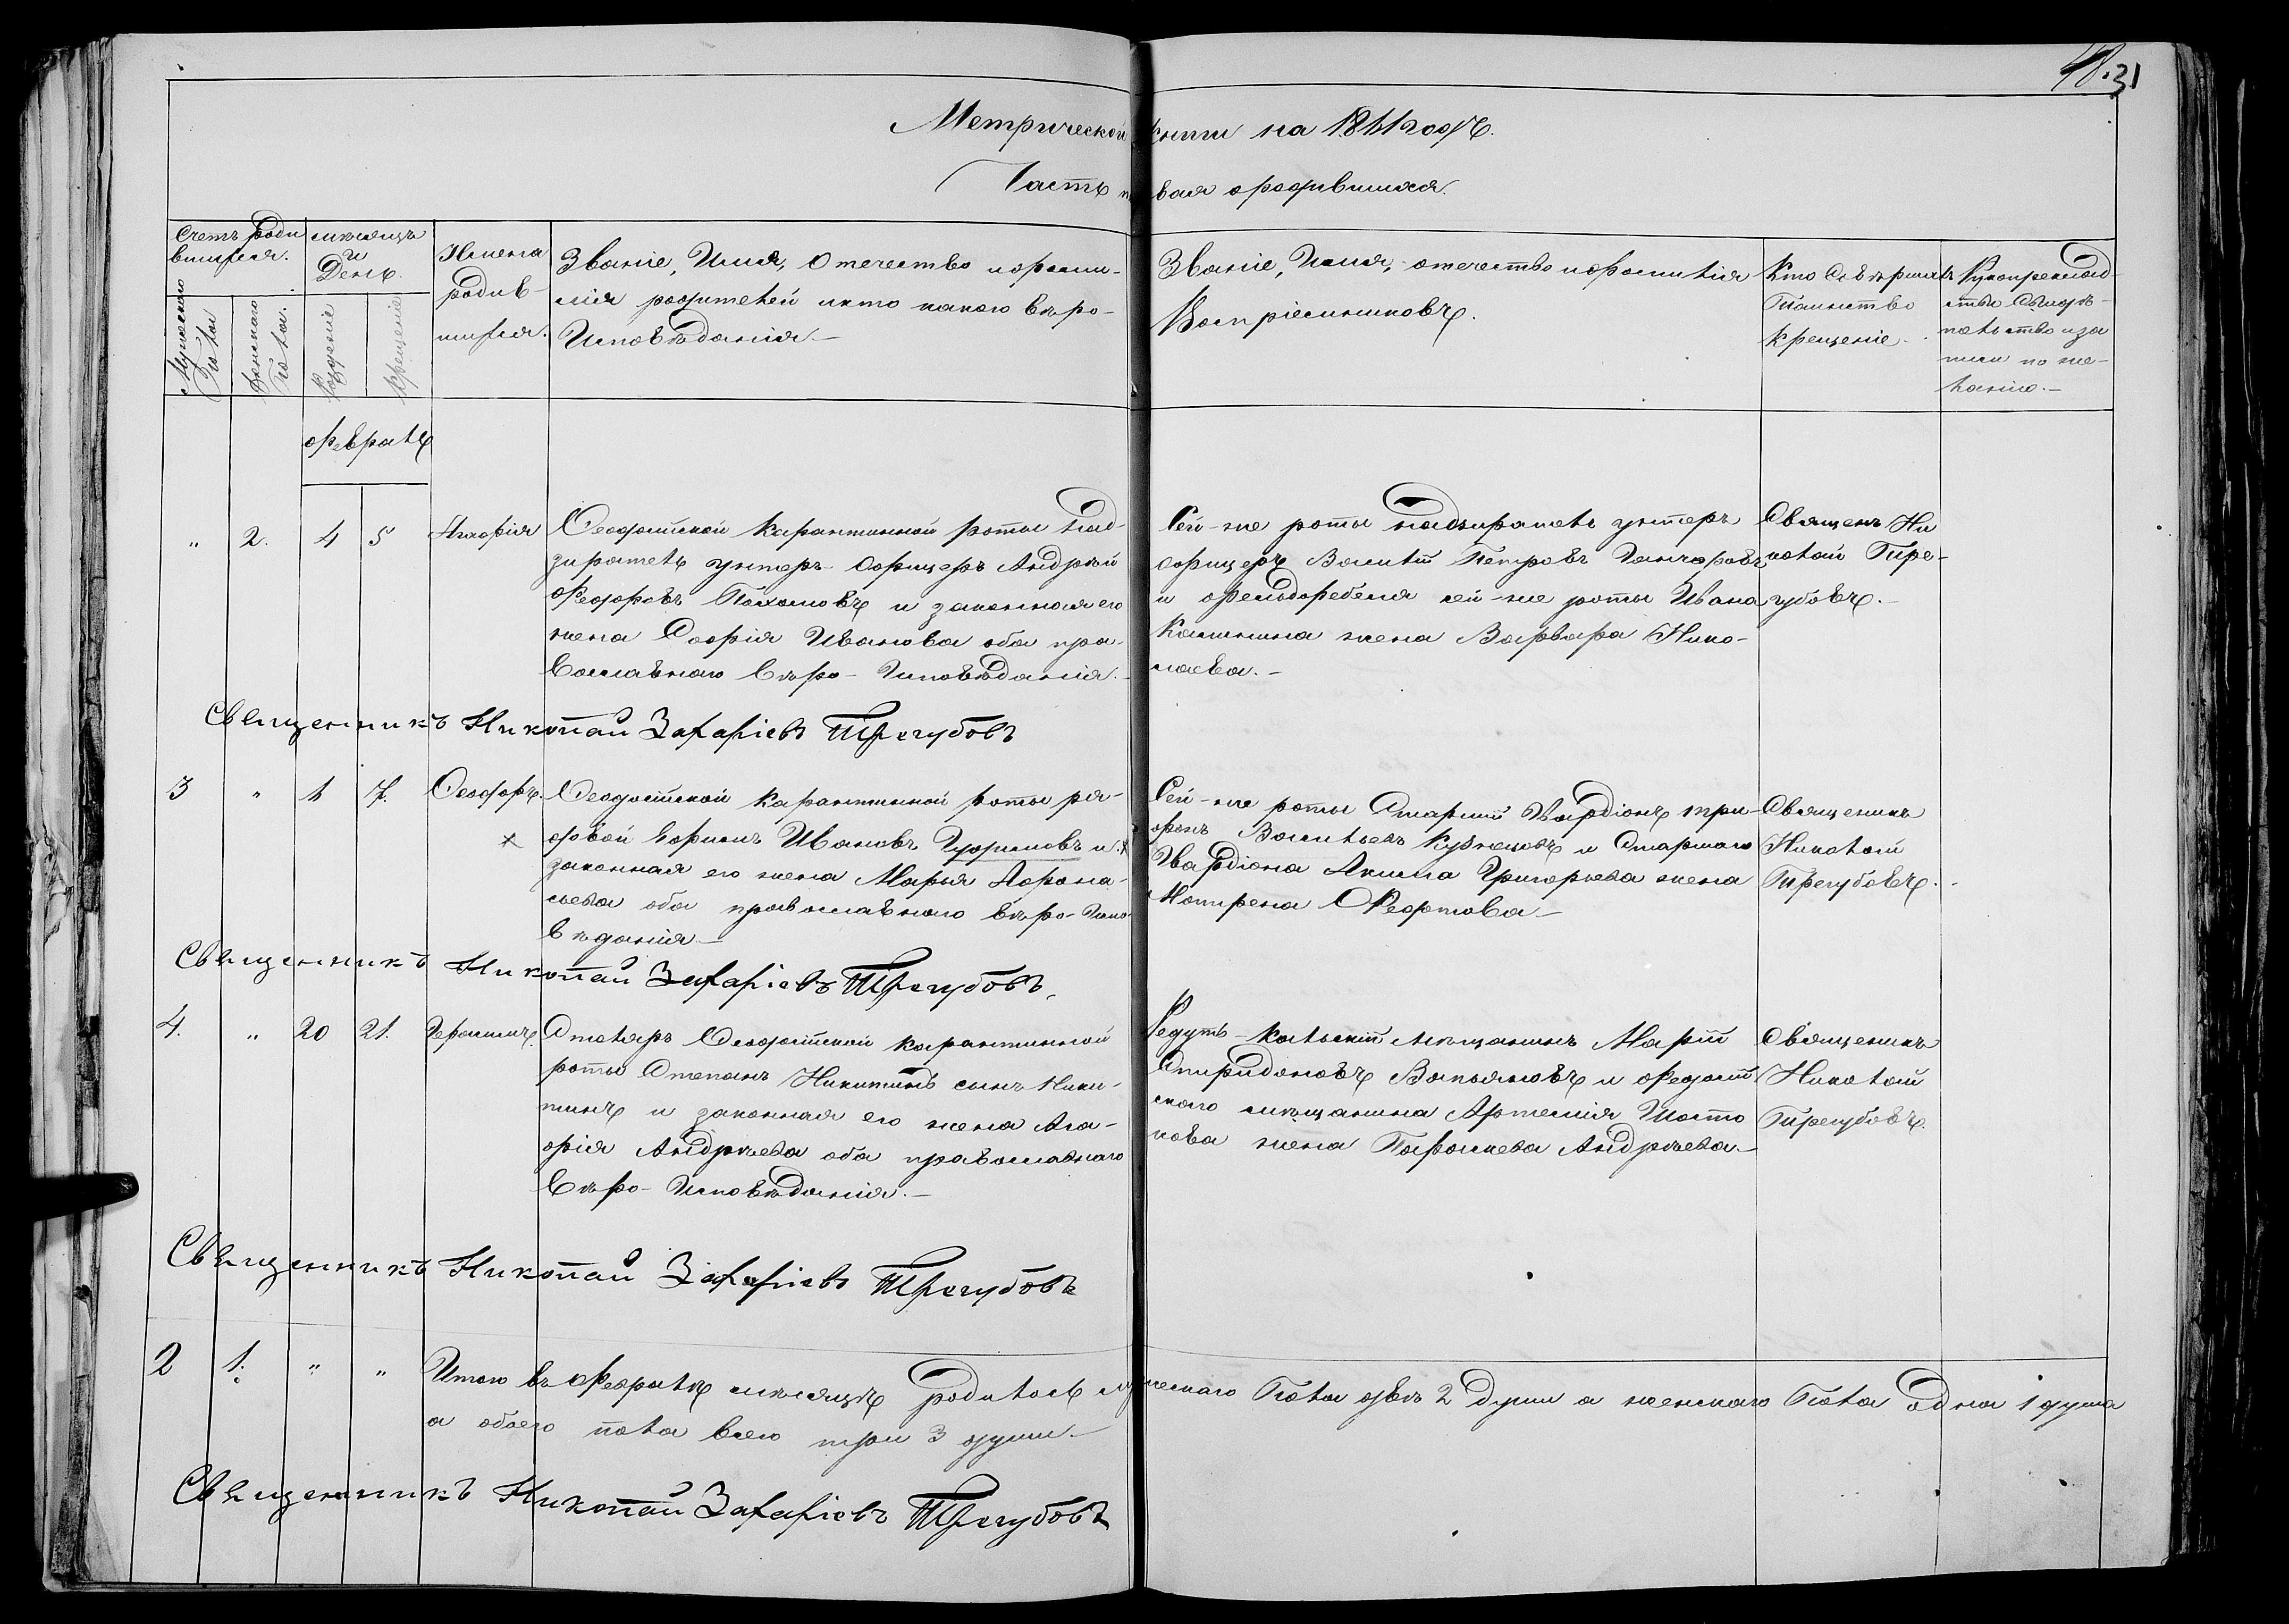 48. 31
Метрической книги на 1841 годъ.
Часть первая о родившихся.
Счетъ роди
вшихся.
Мужескаго
Пола
Женскаго
Пола.
месяцъ
и
День.
Рожденіе
Крещеніе
Имена
родив-
шихся.
Званіе, Имя, Отечество и фами-
лія родителей и кто какого веро-
Исповѣданія.
Званіе, Имя, отечество и фамилія
Воспріемниковъ.
Кто Совѣршалъ
Таинство
Крещеніе
Рукоприклад-
ства Свидѣ-
тельство иза
писи по же-
ланію.
Февраль
" 2. 4 5
Агафія
Феодосійской Карантинной роты над-
зиратель унтеръ Офицеръ Андрѣй
Федоровъ Пахомовъ и законная его
жена Софія Иванова оба пра-
вославнаго Вѣро-Исповѣданія.
Сей-же роты надзиратель унтеръ
Офицеръ Василій Петровъ Ганчаровъ
и фельдфебеля сей-же роты Ивана
Калинина жена Варвара Нико-
лаева.
Священъ Ни
колай Тре-
губовъ.
Священникъ Николай Захаріевъ Трегубовъ
3 " 1 7.
Феодоръ.
Феодосійской Карантинной роты ря-
довой Ефимъ Ивановъ и
законная его жена Марья Афона-
сьева оба православнаго вѣро-Испо
вѣданія
Сей-же роты Старшій Гвардіонъ три-
фонъ Васильевъ Кузнецовъ и Старшаго
Гвардіона Акима Григорьева жена
Мотрена
Священикъ
Николай
Трегубовъ.
Священникъ Николай Захаріевъ Трегубовъ.
4. " 20 21.
Герасимъ
Столяръ Феодосійской карантинной
роты Степанъ Никитинъ сынъ Ники-
тинъ и законная его жена Ага-
фія Андрѣева оба православнаго
Вѣро-Исповѣданія.
Редутъ-Кальскій мещанинъ Марій
Спиридоновъ и Федосій
скаго мещанина Артемія
жена Параскева Андрѣева.
Священикъ
Николай
Трегубовъ.
Священникъ Николай Захаріевъ Трегубовъ
2 1. " "
Итого въ Февралѣ месяцѣ родилось мужескаго Пола двѣ 2 Души а женскаго Пола одна 1 душа
а обоего пола всего три 3 души.
Священникъ Николай Захаріевъ Трегубовъ